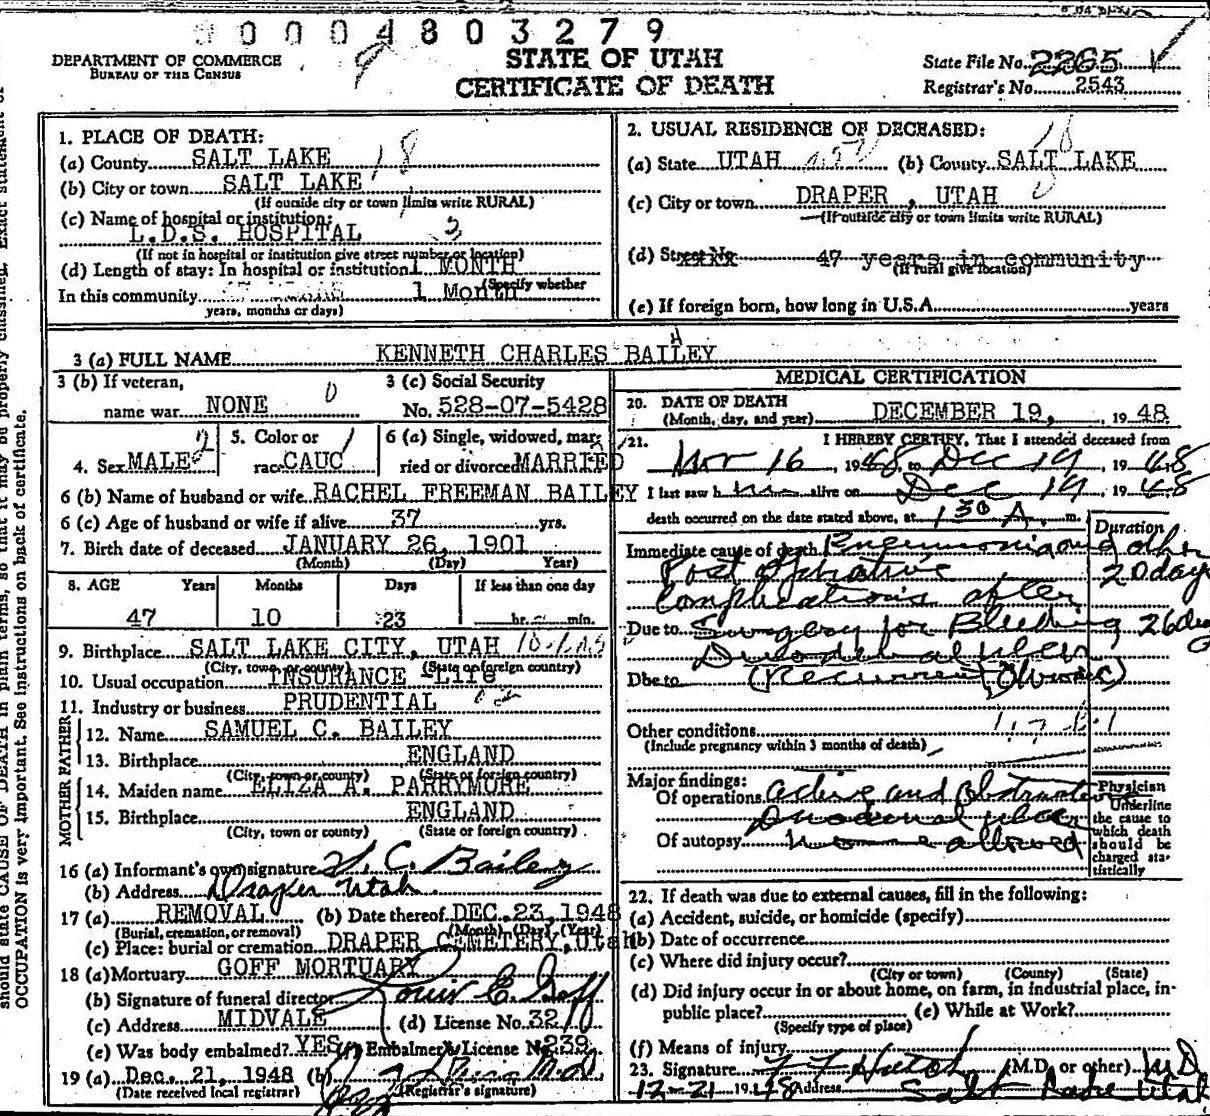 0004803279
DEPARTMENT OF COMMERCE
BUREAU OF THE CENSUS
9
STATE OF UTAH
CERTIFICATE OF DEATH
State File No. 2265
Registrar's No. 2543
1. PLACE OF DEATH:
(a) County SALT LAKE 18
(b) City or town SALT LAKE
(If outside city or town limits write RURAL)
(c) Name of hospital or institution:
L.D.S. HOSPITAL
(If not in hospital or institution give street number or location)
(d) Length of stay: In hospital or institution 1 MONTH
(Specify whether
In this community 1 Month
years, months or days)
2. USUAL RESIDENCE OF DECEASED:
(a) State UTAH (b) County SALT LAKE
(c) City or town DRAPER, UTAH
(If outside city or town limits write RURAL)
(d) Street No. 47 years in community
(If rural give location)
(e) If foreign born, how long in U.S.A. years
3 (a) FULL NAME KENNETH CHARLES BAILEY
3 (b) If veteran,
name war NONE
3 (c) Social Security
No. 528-07-5428
4. Sex MALE
5. Color or
race CAUC
6 (a) Single, widowed, mar
ried or divorced MARRIED
6 (b) Name of husband or wife RACHEL FREEMAN BAILEY
6 (c) Age of husband or wife if alive 37 yrs.
7. Birth date of deceased JANUARY 26, 1901
(Month) (Day) Year)
8. AGE Years Months Days If less than one day
47 10 23 hr. min.
9. Birthplace SALT LAKE CITY, UTAH
(City, town or county) (State or foreign country)
10. Usual occupation INSURANCE -Life
11. Industry or business PRUDENTIAL
FATHER
12. Name SAMUEL C. BAILEY
13. Birthplace ENGLAND
(City, town or county) (State or foreign country)
MOTHER
14. Maiden name ELIZA A. PARRYMORE
15. Birthplace ENGLAND
(City, town or county) (State or foreign country)
16 (a) Informant's own signature C. Bailey
(b) Address Draper Utah.
17 (a) REMOVAL (b) Date thereof DEC. 23, 1948
(Burial, cremation, or removal) (Month) (Day) (Year)
(c) Place: burial or cremation DRAPER CEMETERY, Utah
18 (a) Mortuary GOFF MORTUARY
(b) Signature of funeral director Louis E. Goff
(c) Address MIDVALE (d) License No. 32
(e) Was body embalmed? YES (f) Embalmer's License No. 239
19 (a) Dec. 21, 1948 (b)
(Date received local registrar) (Registrar's signature)
MEDICAL CERTIFICATION
20. DATE OF DEATH
(Month, day, and year) DECEMBER 19, 1948
21. I HEREBY CERTIFY, That I attended deceased from
Nov 16, 1948, to Dec 19, 1948
I last saw him alive on Dec 19, 1948
death occurred on the date stated above, at 1 30 A. m.
Duration
Immediate cause of death Pneumonia and other
Post operative 20 days
complications after
Due to Surgery for Bleeding 26 days
Duodenal ulcer
Due to (Recurrent, Chronic)
Other conditions
(Include pregnancy within 3 months of death)
Major findings:
Of operations active and obstructive
Duodenal ulcer
Of autopsy none allowed
Physician
Underline
the cause to
which death
should be
charged sta-
tistically
22. If death was due to external causes, fill in the following:
(a) Accident, suicide, or homicide (specify)
(b) Date of occurrence
(c) Where did injury occur?
(City or town) (County) (State)
(d) Did injury occur in or about home, on farm, in industrial place, in-
public place? (e) While at Work?
(Specify type of place)
(f) Means of injury
23. Signature Hatch (M.D. or other) M D
12-21 1948 Address Salt Lake Utah
should state CAUSE OF DEATH in plain terms, so that it may be properly classified. Exact statement of
OCCUPATION is very important. See instructions on back of certificate.